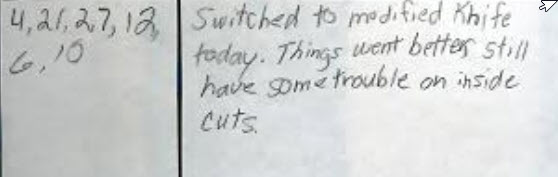 4, 21, 27, 12,
6, 10
Switched to modified Knife
today. Things went better still
have some trouble on inside
cuts.